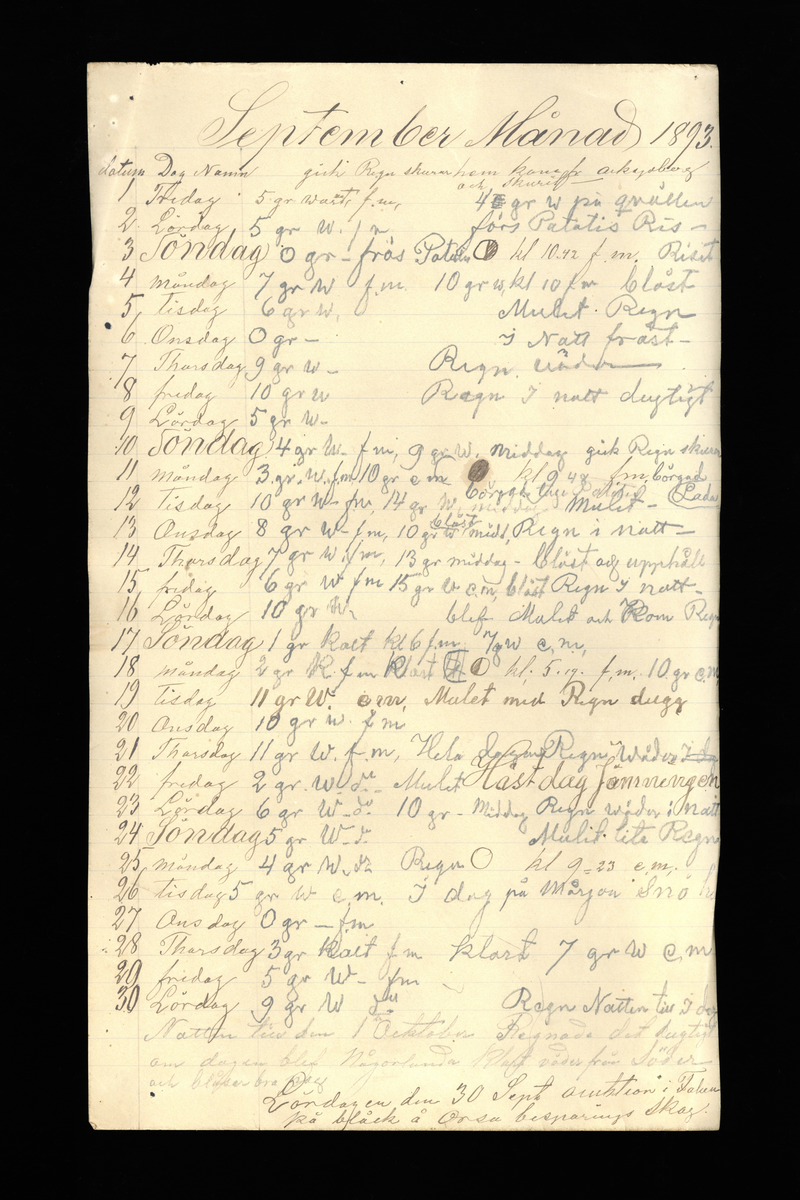 September Månad 1893.
datum Dag Namn gick Regn skurar hem kom fr
och skurit
1 Fredag 5 gr wart, f.m, 4 gr w på qvällen
2 Lördag 5 gr w. f m förs Patatis Ris -
3 Söndag 0 gr - frös Patatis kl 10.42 f.m. Riset
4 måndag 7 gr w f.m. 10 gr w, kl 10 fm blåst
5, tisdag 6 gr w, Mulet. Regn
6 Onsdag 0 gr - I Natt fråst -
7 Thorsdag 9 gr w - Regn väder
8 fredag 10 gr w Rægn I natt dugtigt
9 Lördag 5 gr w -
10 Söndag 4 gr w - f m, 9 gr w. middag gick Regn skurar
11 måndag 3. gr. w. f.m 10 gr e m kl 9 48 f m, börgad
börgade Lada
12 Tisdag 10 gr w - fm, 14 gr w, middag Mulet -
13 Onsdag 8 gr w - f m, 10 gr w midd, blåst Regn i natt -
14 Thorsdag 7 gr w. f m, 13 gr middag - blåst och upphåll
15, fredag 6 gr w f m 15 gr w e.m, blåst Regn I natt -
16 Lördag 10 gr w, blef Mulet och Kom Regn
17 Söndag 1 gr kalt kl 6 f.m 7 gr w e, m,
18 måndag 2 gr k. f m klart kl, 5. 19. f, m, 10 gr e.m
19 Tisdag 11 gr w. e m, Mulet med Regn dugg
20 Onsdag 10 gr w. f m
21 Thorsdag 11 gr w. f. m, Hela dagen Regn wäder I dag
22 fredag 2 gr. w - do - Mulet Höstdag Jämningen
23 Lördag 6 gr w - do 10 gr - Middag Regn wäder i natt
24 Söndag 5 gr w - do Mulit. lite Regn
25, måndag 4 gr w. do Regn kl 9 = 23 e, m.
26 tisdag 5 gr w e, m. I dag på Mårgon Snö
27 Onsdag 0 gr - f m
28 Thorsdag 3 gr kalt f m klart 7 gr w e, m
29 fredag 5 gr w - fm
30 Lördag 9 gr w do Regn Natten till I dag
Natten till den 1 Oktober Regnade det dugtigt
om dagen blef Någorlunda klart väder från Söder
och blåser bra
Lördagen den 30 Sept auktion i Falun
på blåck å Orsa besparings skog.